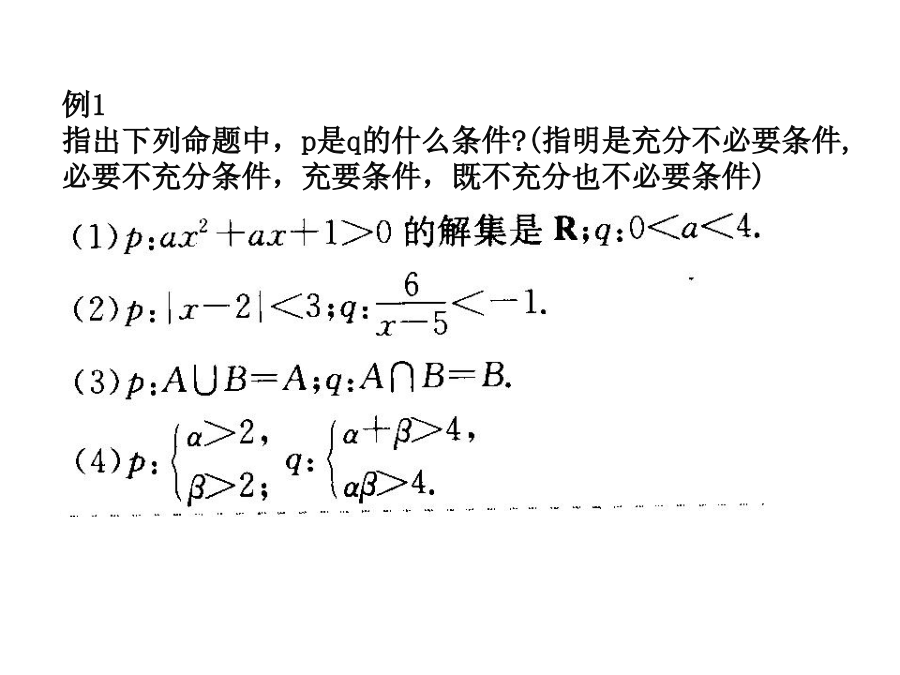 例1
指出下列命题中，p是q的什么条件?(指明是充分不必要条件,
必要不充分条件，充要条件，既不充分也不必要条件)
(1)p:ax²+ax+1>0 的解集是 R;q:0<a<4.
(2)p:|x-2|<3;q:6/(x-5)<-1.
(3)p:A∪B=A;q:A∩B=B.
(4)p:{α>2, β>2; q:{α+β>4, αβ>4.